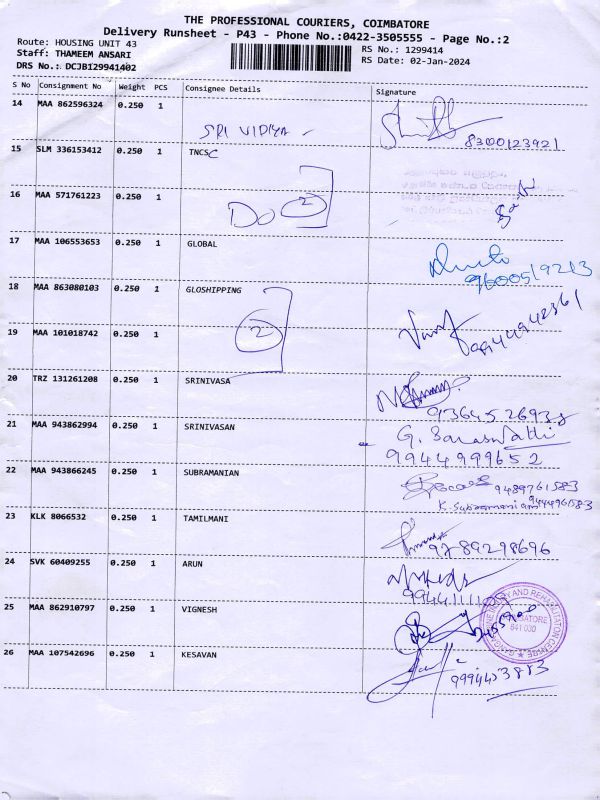 THE PROFESSIONAL COURIERS, COIMBATORE
Delivery Runsheet - P43 - Phone No.:0422-3505555 - Page No.:2
Route: HOUSING UNIT 43
Staff: THAMEEM ANSARI
DRS No.: DCJBI29941402
RS No.: 1299414
RS Date: 02-Jan-2024
S No Consignment No Weight PCS Consignee Details Signature
14 MAA 862596324 0.250 1
SRI VIDIYA
8300123921
15 SLM 336153412 0.250 1 TNCSC
16 MAA 571761223 0.250 1
DO 2
17 MAA 106553653 0.250 1 GLOBAL
9600519213
18 MAA 863080103 0.250 1 GLOSHIPPING
19 MAA 101018742 0.250 1
2
9944942361
20 TRZ 131261208 0.250 1 SRINIVASA
9364526938
21 MAA 943862994 0.250 1 SRINIVASAN
G. Saraswathi
9944999652
22 MAA 943866245 0.250 1 SUBRAMANIAN
9489761583
K. Subramaniam 9444961583
23 KLK 8066532 0.250 1 TAMILMANI
9789298696
24 SVK 60409255 0.250 1 ARUN
25 MAA 862910797 0.250 1 VIGNESH
COIMBATORE
641 030
26 MAA 107542696 0.250 1 KESAVAN
9994453883